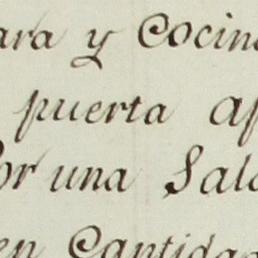 ara y Cocin
puerta ap
or una Sala
en Cantidad